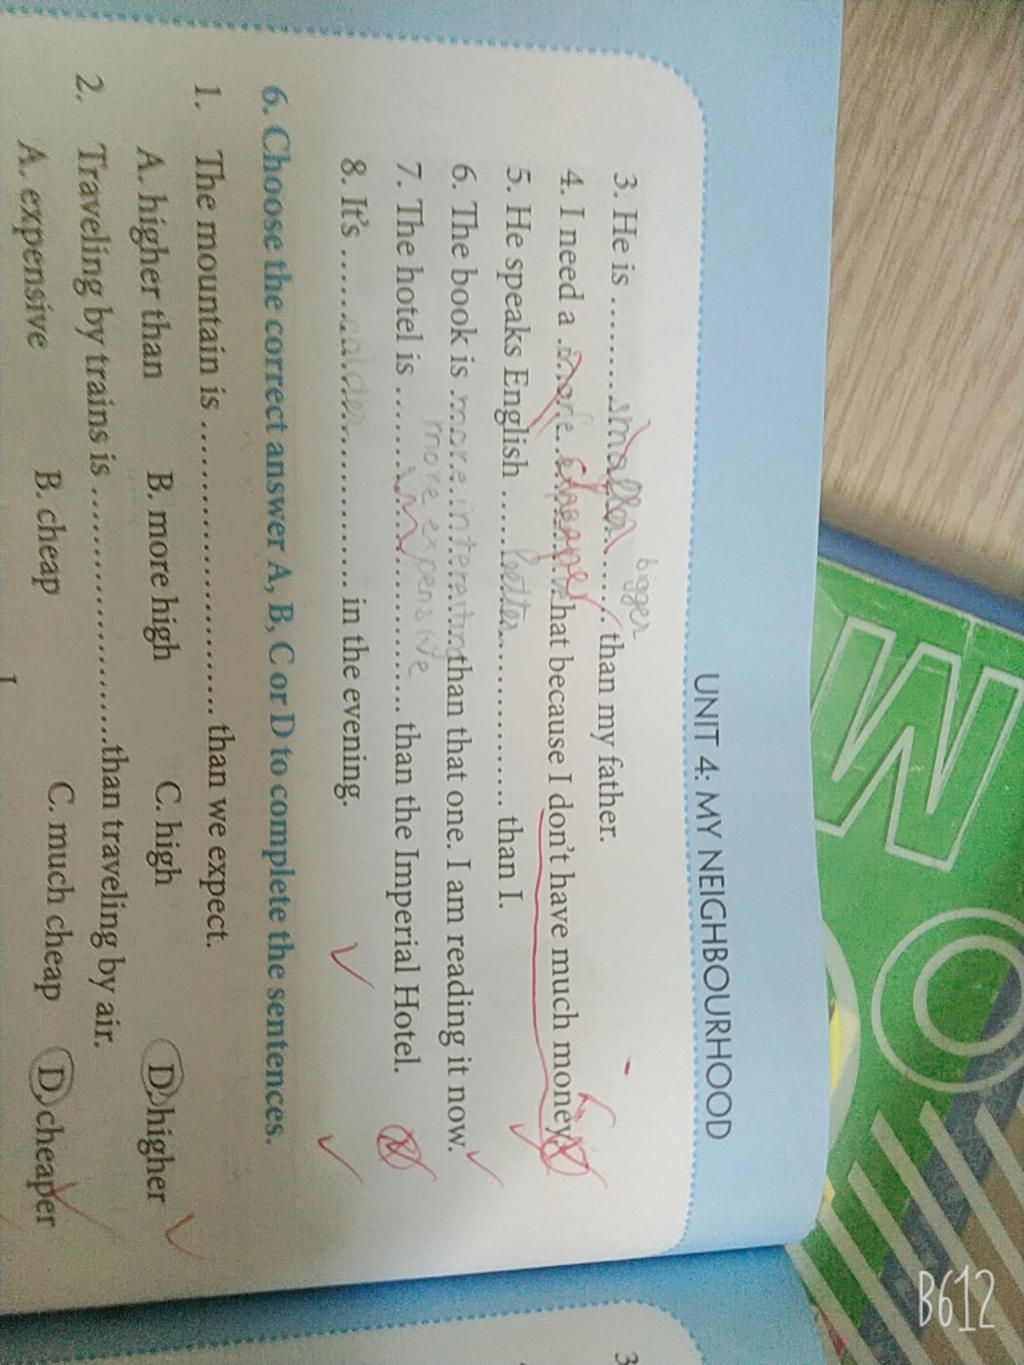 UNIT 4: MY NEIGHBOURHOOD
bigger
3. He is ........smaller........ than my father.
4. I need a .more...cheaper hat because I don't have much money.
5. He speaks English .....better.................. than I.
6. The book is .more.interesting.than that one. I am reading it now.
more expensive
7. The hotel is ........................... than the Imperial Hotel.
8. It's .......colder................. in the evening.
6. Choose the correct answer A, B, C or D to complete the sentences.
1. The mountain is ................................. than we expect.
A. higher than B. more high C. high D. higher
2. Traveling by trains is ............................than traveling by air.
A. expensive B. cheap C. much cheap D. cheaper
3
B612